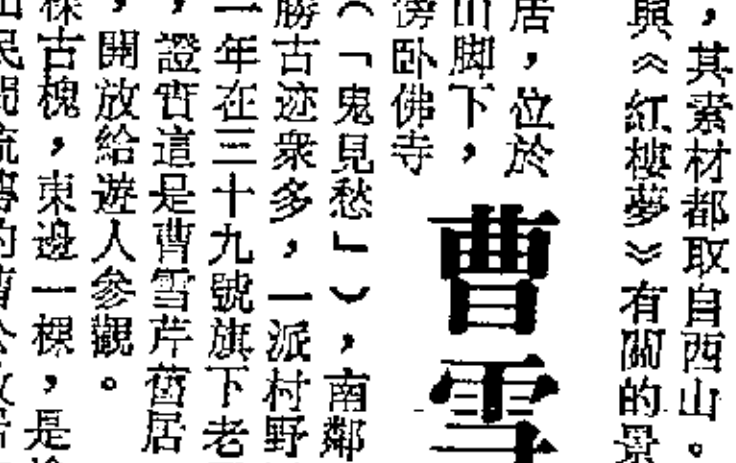 ，其素材都取自西山。
與《紅樓夢》有關的景
曹雪
居，位於
山脚下，
傍卧佛寺
（「鬼見愁」），南鄰
勝古迹衆多，一派村野
一年在三十九號旗下老
，證實這是曹雪芹舊居
，開放給遊人參觀。
棵古槐，東邊一棵，是
民間流傳的曹公故居